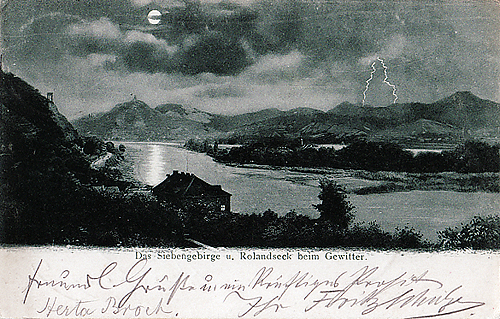 Das Siebengebirge u. Rolandseck beim Gewitter.
Freundl Grüße u. ein Kräftiges Prosit
Herta Broch. Ihr Fritz Schulze